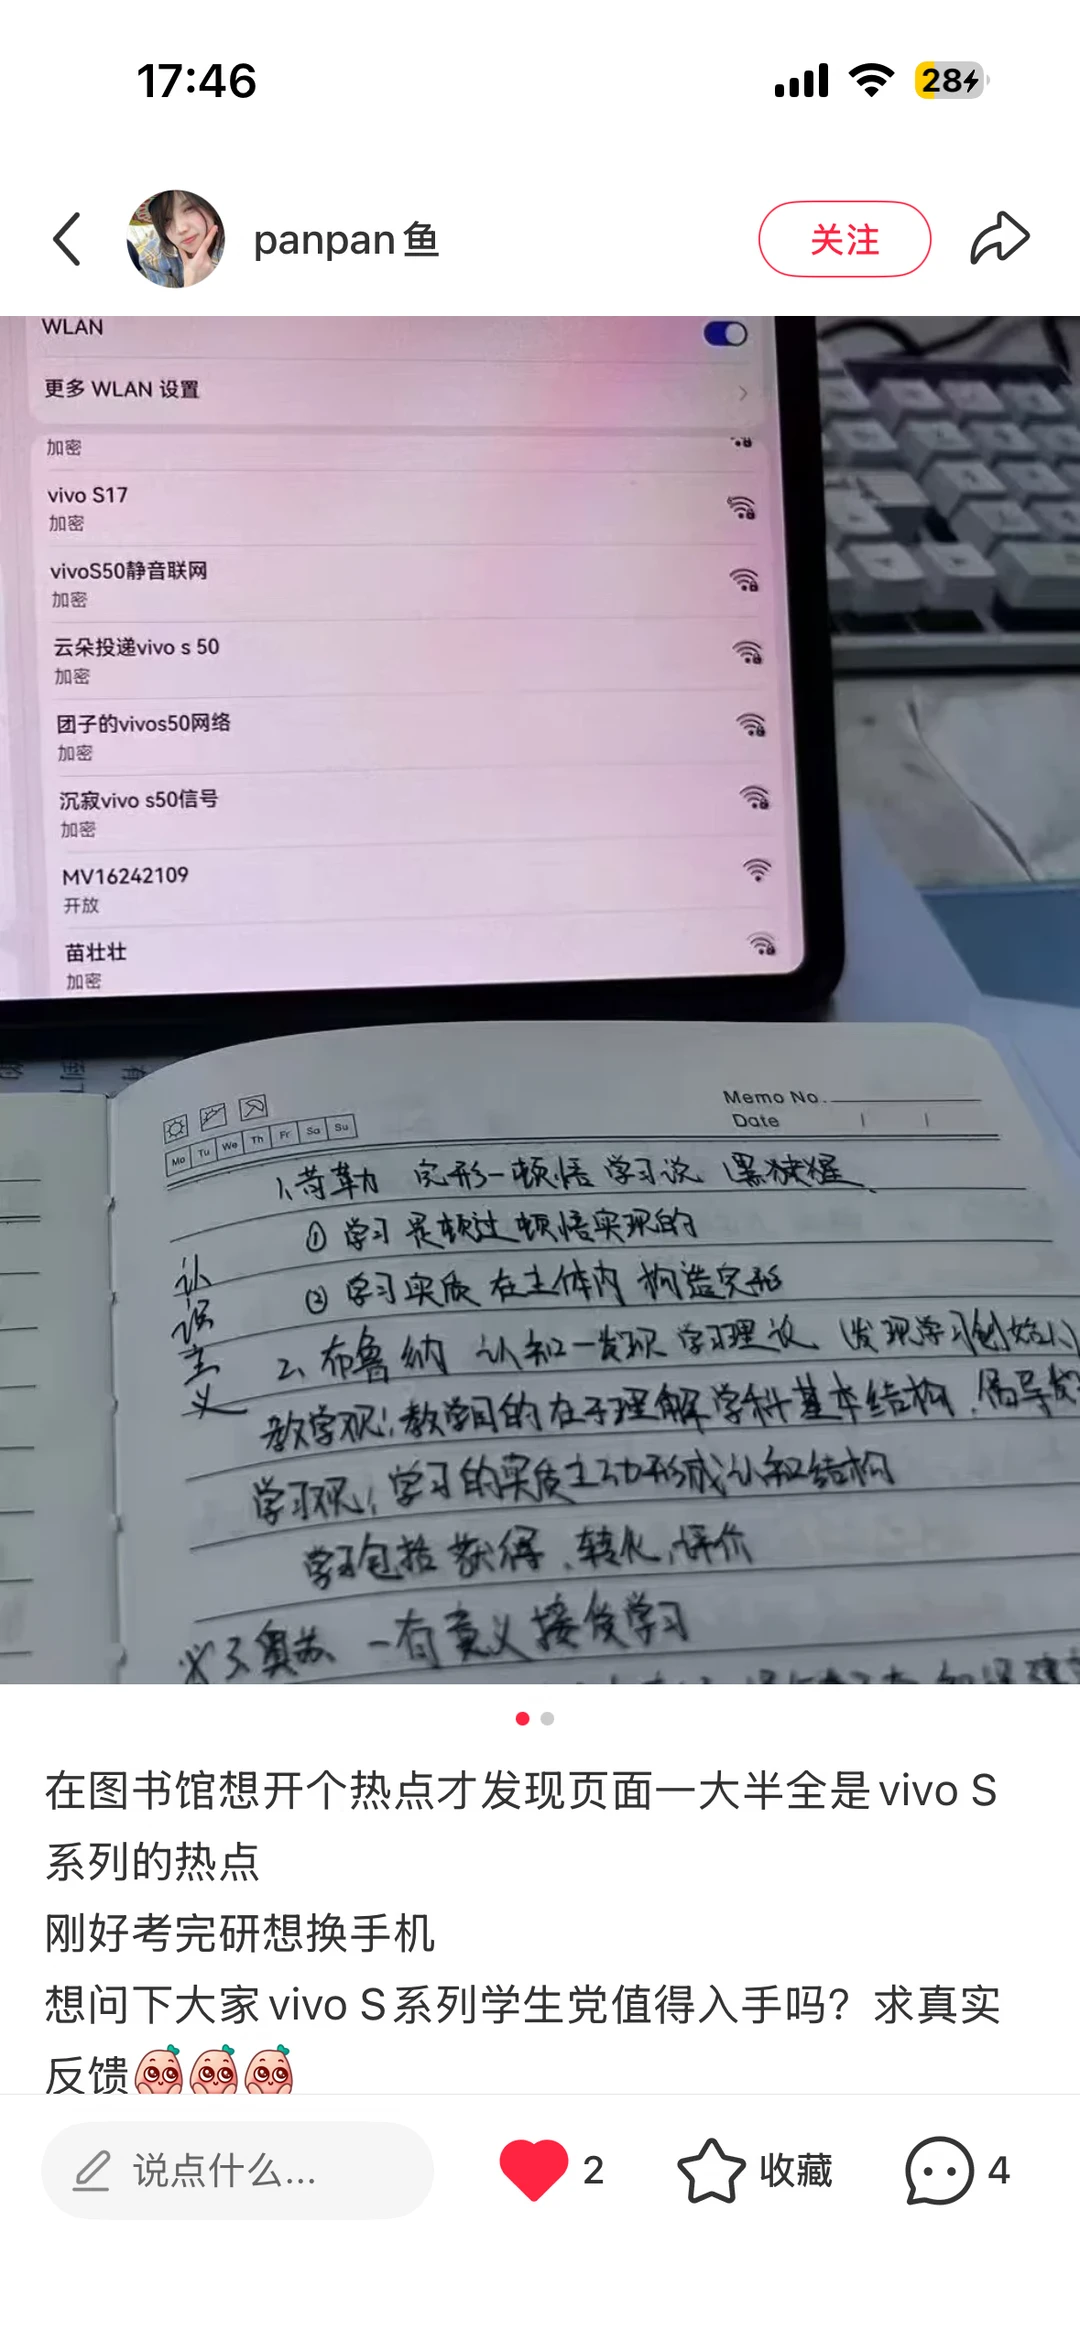 17:46
28
panpan鱼
关注
WLAN
更多 WLAN 设置
加密
vivo S17
加密
vivoS50静音联网
加密
云朵投递vivo s 50
加密
团子的vivos50网络
加密
沉寂vivo s50信号
加密
MV16242109
开放
苗壮壮
加密
Memo No.
Date
Mo Tu We Th Fr Sa Su
1、苛勒 完形一顿悟 学习说 黑猩猩
① 学习是 顿悟实现的
② 学习实质 在主体内 构造完形
认识主义
2、布鲁纳 认知一发现 学习理论 (发现学习创始人
教学观:教学目的在于理解学科基本结构.倡导
学习观:学习的实质主动形成认知结构
学习包括 获得、转化、评价
3奥苏 一有意义接受学习
在图书馆想开个热点才发现页面一大半全是vivo S
系列的热点
刚好考完研想换手机
想问下大家vivo S系列学生党值得入手吗？求真实
反馈
说点什么...
2
收藏
4